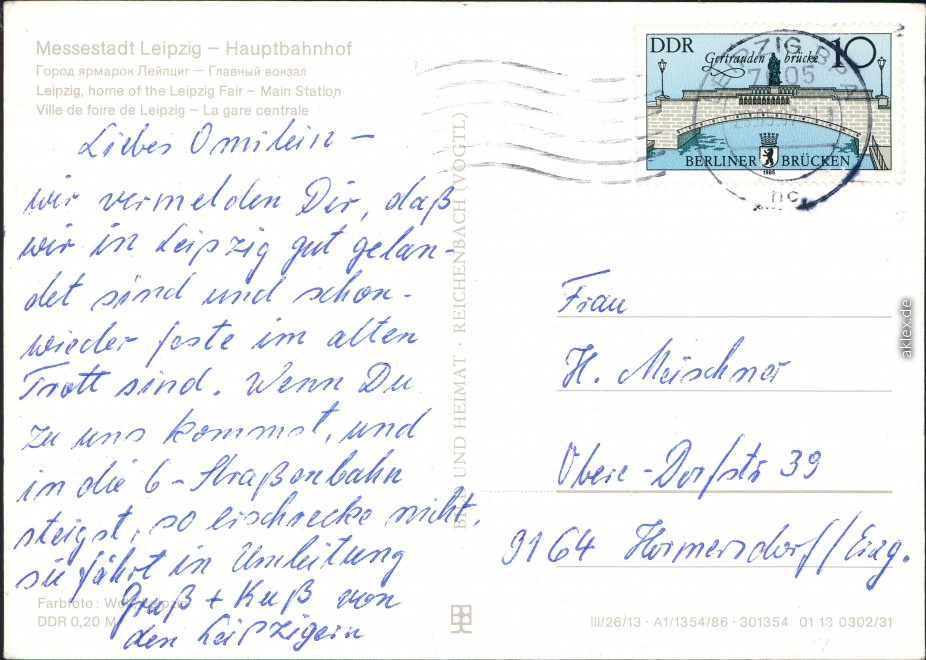 Messestadt Leipzig – Hauptbahnhof
Город ярмарок Лейпциг — Главный вокзал
Leipzig, home of the Leipzig Fair – Main Station
Ville de foire de Leipzig – La gare centrale
Liebes Omilein –
wir vermelden Dir, daß
wir in Leipzig gut gelan-
det sind und schon-
wieder feste im alten
Trott sind. Wenn Du
zu uns kommst, und
in die 6-Straßenbahn
steigst, so erschrecke nicht,
sie fährt in Umleitung
Gruß + Kuß von
den Leipzigern
Farbfoto:
DDR 0,20 M
BILD UND HEIMAT · REICHENBACH (VOGTL)
DDR
10
Gertraudenbrücke
BERLINER BRÜCKEN
1985
LEIPZIG BPA
Frau
H. Meischner
Obere-Dorfstr 39
9164 Hormersdorf/Erzg.
III/26/13 · A1/1354/86 · 301354 01 13 0302/31
aklex.de